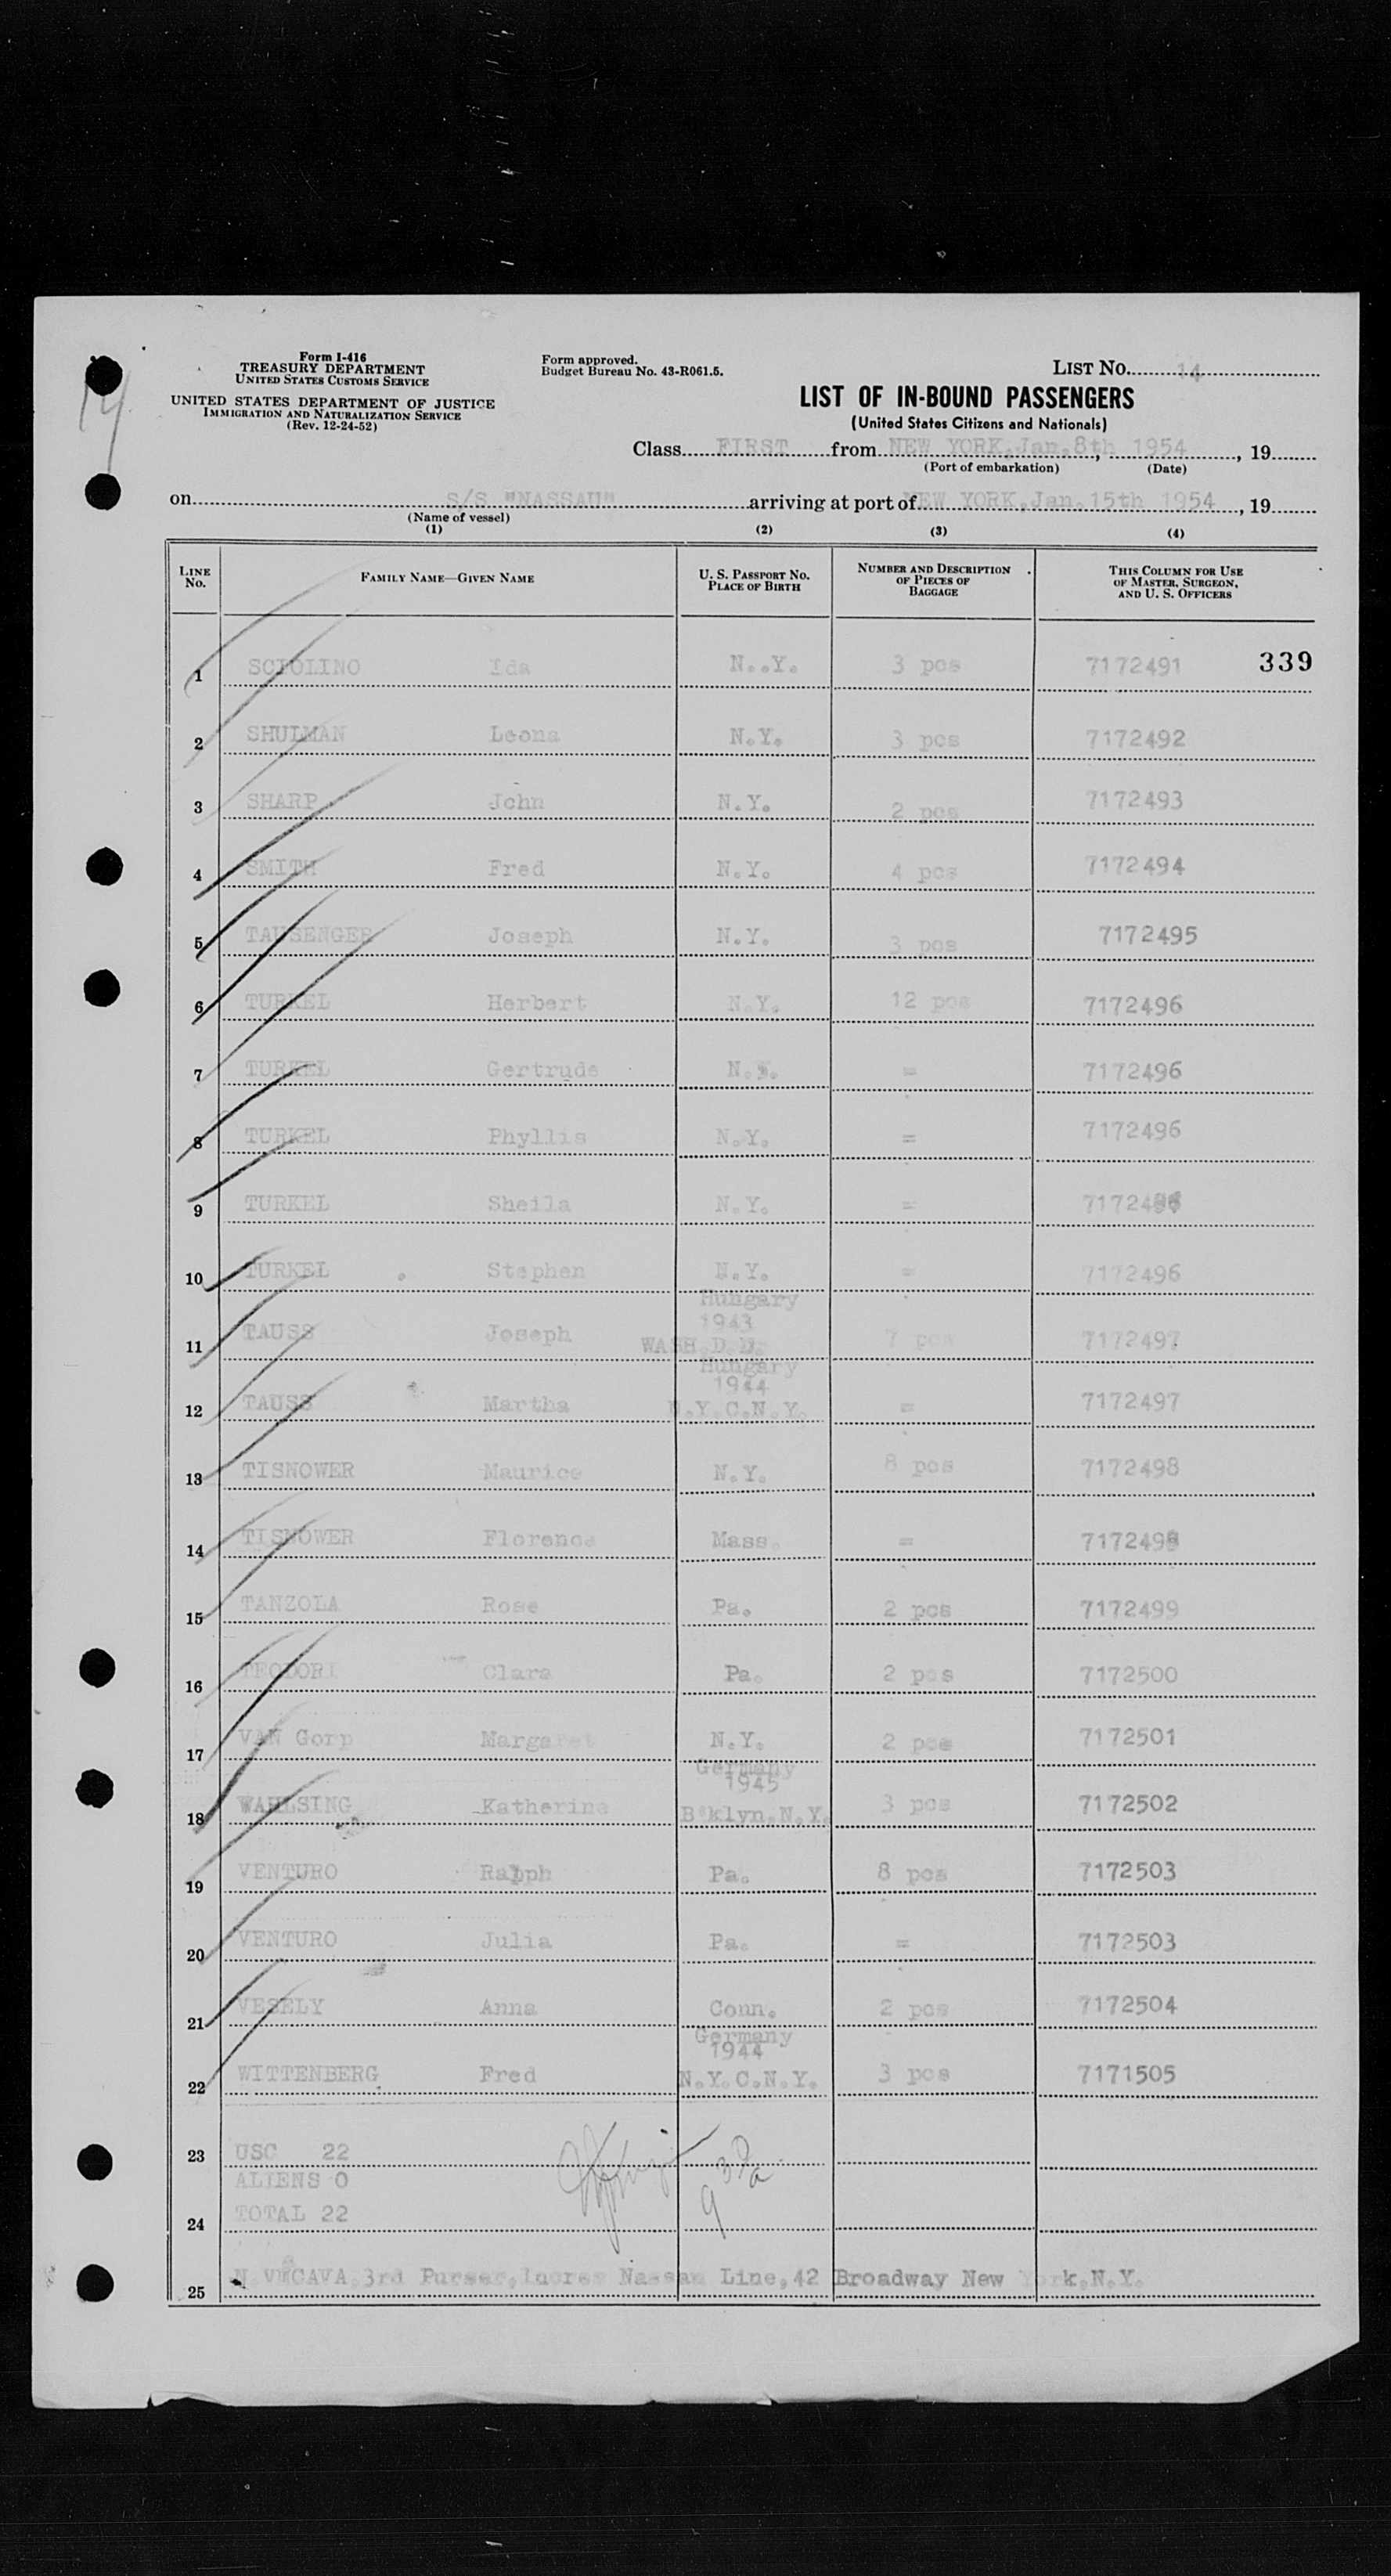 Form I-416
TREASURY DEPARTMENT
UNITED STATES CUSTOMS SERVICE
UNITED STATES DEPARTMENT OF JUSTICE
IMMIGRATION AND NATURALIZATION SERVICE
(Rev. 12-24-52)
Form approved.
Budget Bureau No. 43-R061.5.
LIST NO. 14
14
LIST OF IN-BOUND PASSENGERS
(United States Citizens and Nationals)
Class FIRST from NEW YORK,Jan.8th 1954, 19
(Port of embarkation) (Date)
on S/S "NASSAU" arriving at port of NEW YORK,Jan.15th 1954, 19
(Name of vessel)
(1) (2) (3) (4)
LINE NO. FAMILY NAME—GIVEN NAME U. S. PASSPORT NO. PLACE OF BIRTH NUMBER AND DESCRIPTION OF PIECES OF BAGGAGE THIS COLUMN FOR USE OF MASTER, SURGEON, AND U. S. OFFICERS
1 SCIOLINO Ida N..Y. 3 pcs 7172491 339
2 SHULMAN Leona N.Y. 3 pcs 7172492
3 SHARP John N.Y. 2 pcs 7172493
4 SMITH Fred N.Y. 4 pcs 7172494
5 TAUSENGER Joseph N.Y. 3 pcs 7172495
6 TURKEL Herbert N.Y. 12 pcs 7172496
7 TURKEL Gertrude N.Y. = 7172496
8 TURKEL Phyllis N.Y. = 7172496
9 TURKEL Sheila N.Y. = 7172496
10 TURKEL Stephen N.Y. = 7172496
Hungary
1943
11 TAUSS Joseph WASH.D.D. 7 pcs 7172497
Hungary
1944
12 TAUSS Martha N.Y.C.N.Y. = 7172497
13 TISNOWER Maurice N.Y. 8 pcs 7172498
14 TISNOWER Florence Mass. = 7172498
15 TANZOLA Rose Pa. 2 pcs 7172499
16 TEODORI Clara Pa. 2 pcs 7172500
17 VAN Gorp Margaret N.Y. 2 pcs 7172501
Germany
1945
18 WAHLSING Katherine B'klyn.N.Y. 3 pcs 7172502
19 VENTURO Ralph Pa. 8 pcs 7172503
20 VENTURO Julia Pa. = 7172503
21 VESELY Anna Conn. 2 pcs 7172504
Germany
1944
22 WITTENBERG Fred N.Y.C.N.Y. 3 pcs 7171505
23 USC 22
ALIENS 0
24 TOTAL 22
25 N.VUCAVA,3rd Purser,Incres Nassau Line,42 Broadway New York,N.Y.